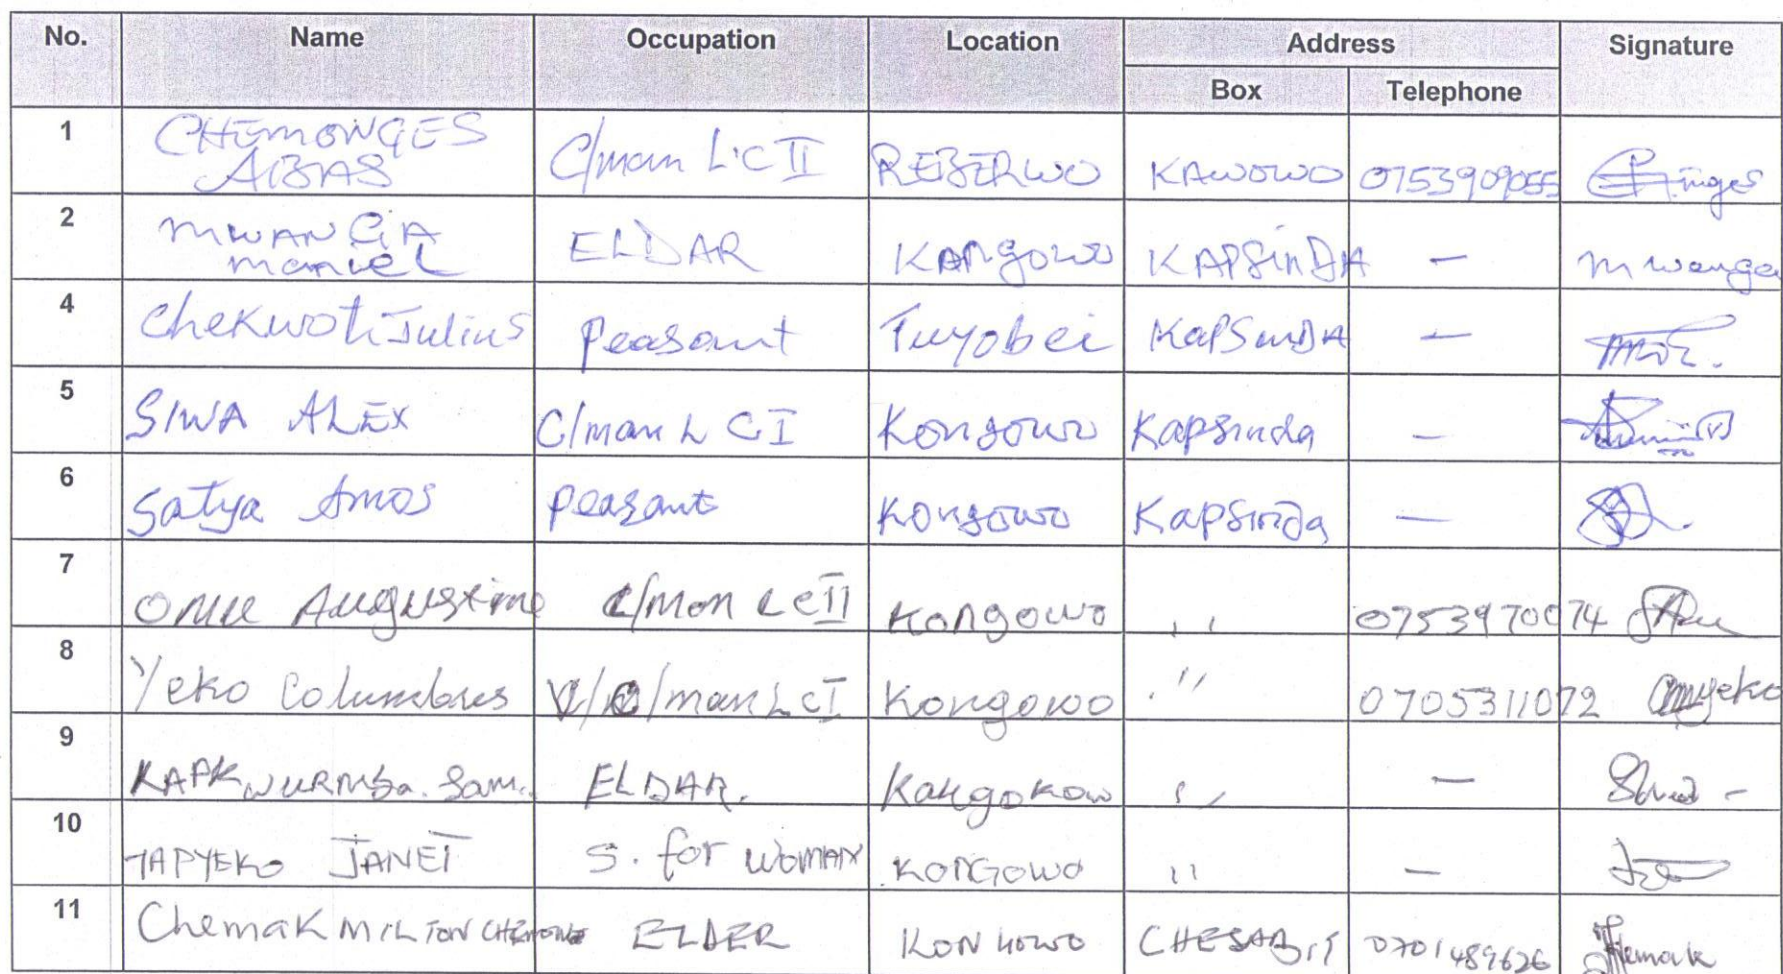 No. Name Occupation Location Address Signature
Box Telephone
1 CHEMONGES ABAS C/man L.C II REBERWO KAWOWO 0753909055
2 MWANGA Manuel ELDAR KANgowo KAPSINDA – mwanga
4 Chekwoti Julius Peasant Tuyobei KapSinDA –
5 SIWA ALEX C/man L C I Kongowo Kapsinda –
6 Satya Amos Peasant Kongowo Kapsinda –
7 Omu Augustine C/man L C II Kongowo ,, 0753970074
8 Yeko Columbus V/C/man L C I Kongowo ,, 0705311072
9 KAPKWURMBA. Sam. ELDAR. Kangokow ,, –
10 TAPYEKO JANET S. for WOMAN KONGOWO ,, –
11 Chemak MILTON ELDER KONGOWO 0701489626 Chemak